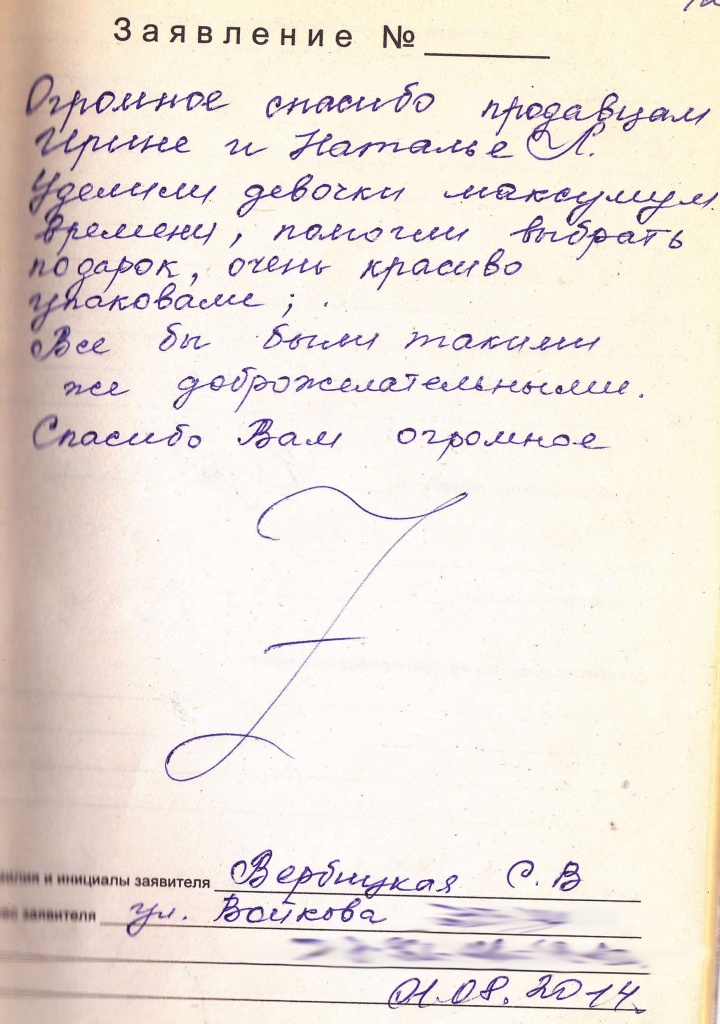 Заявление № ______
Огромное спасибо продавцам
Ирине и Наталье Л.
Уделили девочки максумум
времени, помогли выбрать
подарок, очень красиво
упаковали; .
Все бы были такими
же доброжелательными.
Спасибо Вам огромное
милия и инициалы заявителя Вербицкая С. В
заявителя ул. Войкова
01.08.2014